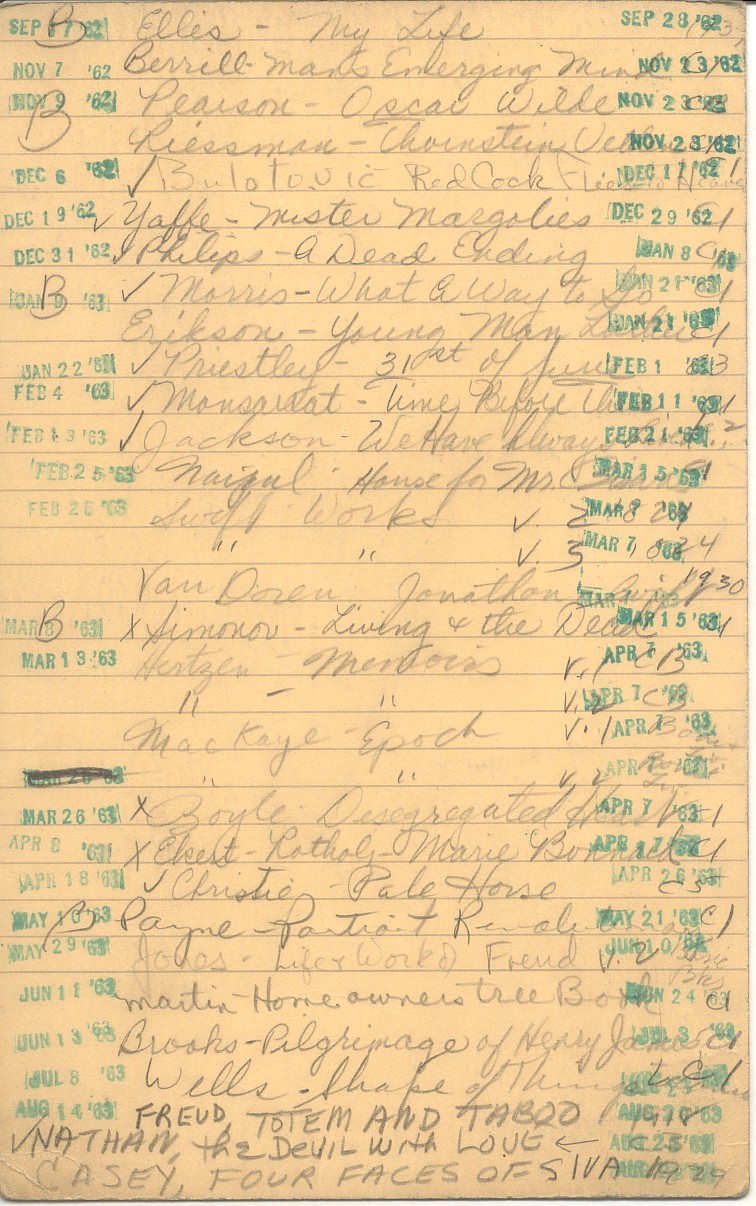 SEP 17 '62 B Ellis - My Life SEP 28 '62
NOV 7 '62 Berrill - Man's Emerging Mind NOV 23 '62 C1
NOV 9 '62 B Pearson - Oscar Wilde NOV 23 '62
Riessman - Thorstein NOV 23 '62
DEC 6 '62 ✓ Bulatovic Red Cock Flies to DEC 17 '62 C1
DEC 19 '62 ✓ Yaffe - Mister Margolies DEC 29 '62 C1
DEC 31 '62 ✓ Philips - A Dead Ending JAN 8 '63 C1
JAN 9 '63 B ✓ Morris - What A Way to Go JAN 21 '63 C1
Erikson - Young Man JAN 21 '63 C1
JAN 22 '63 ✓ Priestley - 31st of June FEB 1 '63
FEB 4 '63 ✓ Monsarrat - Time Before This FEB 11 '63 C1
FEB 13 '63 ✓ Jackson - We Have Always FEB 21 '63
FEB 25 '63 Naipul - House for Mr. MAR 15 '63 C1
FEB 26 '63 Swift Works v. 2 MAR 7 '63 1824
" " v. 3 MAR 7 '63 1824
Van Doren Jonathan Swift MAR 1930
MAR 8 '63 B X Simonov - Living & the Dead MAR 15 '63 C1
MAR 13 '63 Hertzen - Memoirs v. 1 APR 7 '63 CB
" - " v. 2 APR 7 '63 CB
MacKaye - Epoch v. 1 APR 7 '63
" " v. 2 APR 7 '63
MAR 26 '63 X Boyle Desegregated Heart APR 7 '63 C1
APR 8 '63 X Ekert-Rotholz - Marie Bonnard APR 17 '63 C1
APR 18 '63 ✓ Christie - Pale Horse APR 26 '63
MAY 10 '63 B Payne - Portrait MAY 21 '63 C1
MAY 29 '63 Jones - Life & Work of Freud v. 2 JUN 10 '63
JUN 11 '63 Martin - Home owners tree Book JUN 24 '63 C1
JUN 13 '63 Brooks - Pilgrimage of Henry James JUL 3 '63 C1
JUL 8 '63 Wells - Shape of Things C1
AUG 14 '63 FREUD, TOTEM AND TABOO AUG 26 '63
✓ NATHAN, the DEVIL WITH LOVE ← AUG 25 '63
CASEY, FOUR FACES OF SIVA 1929